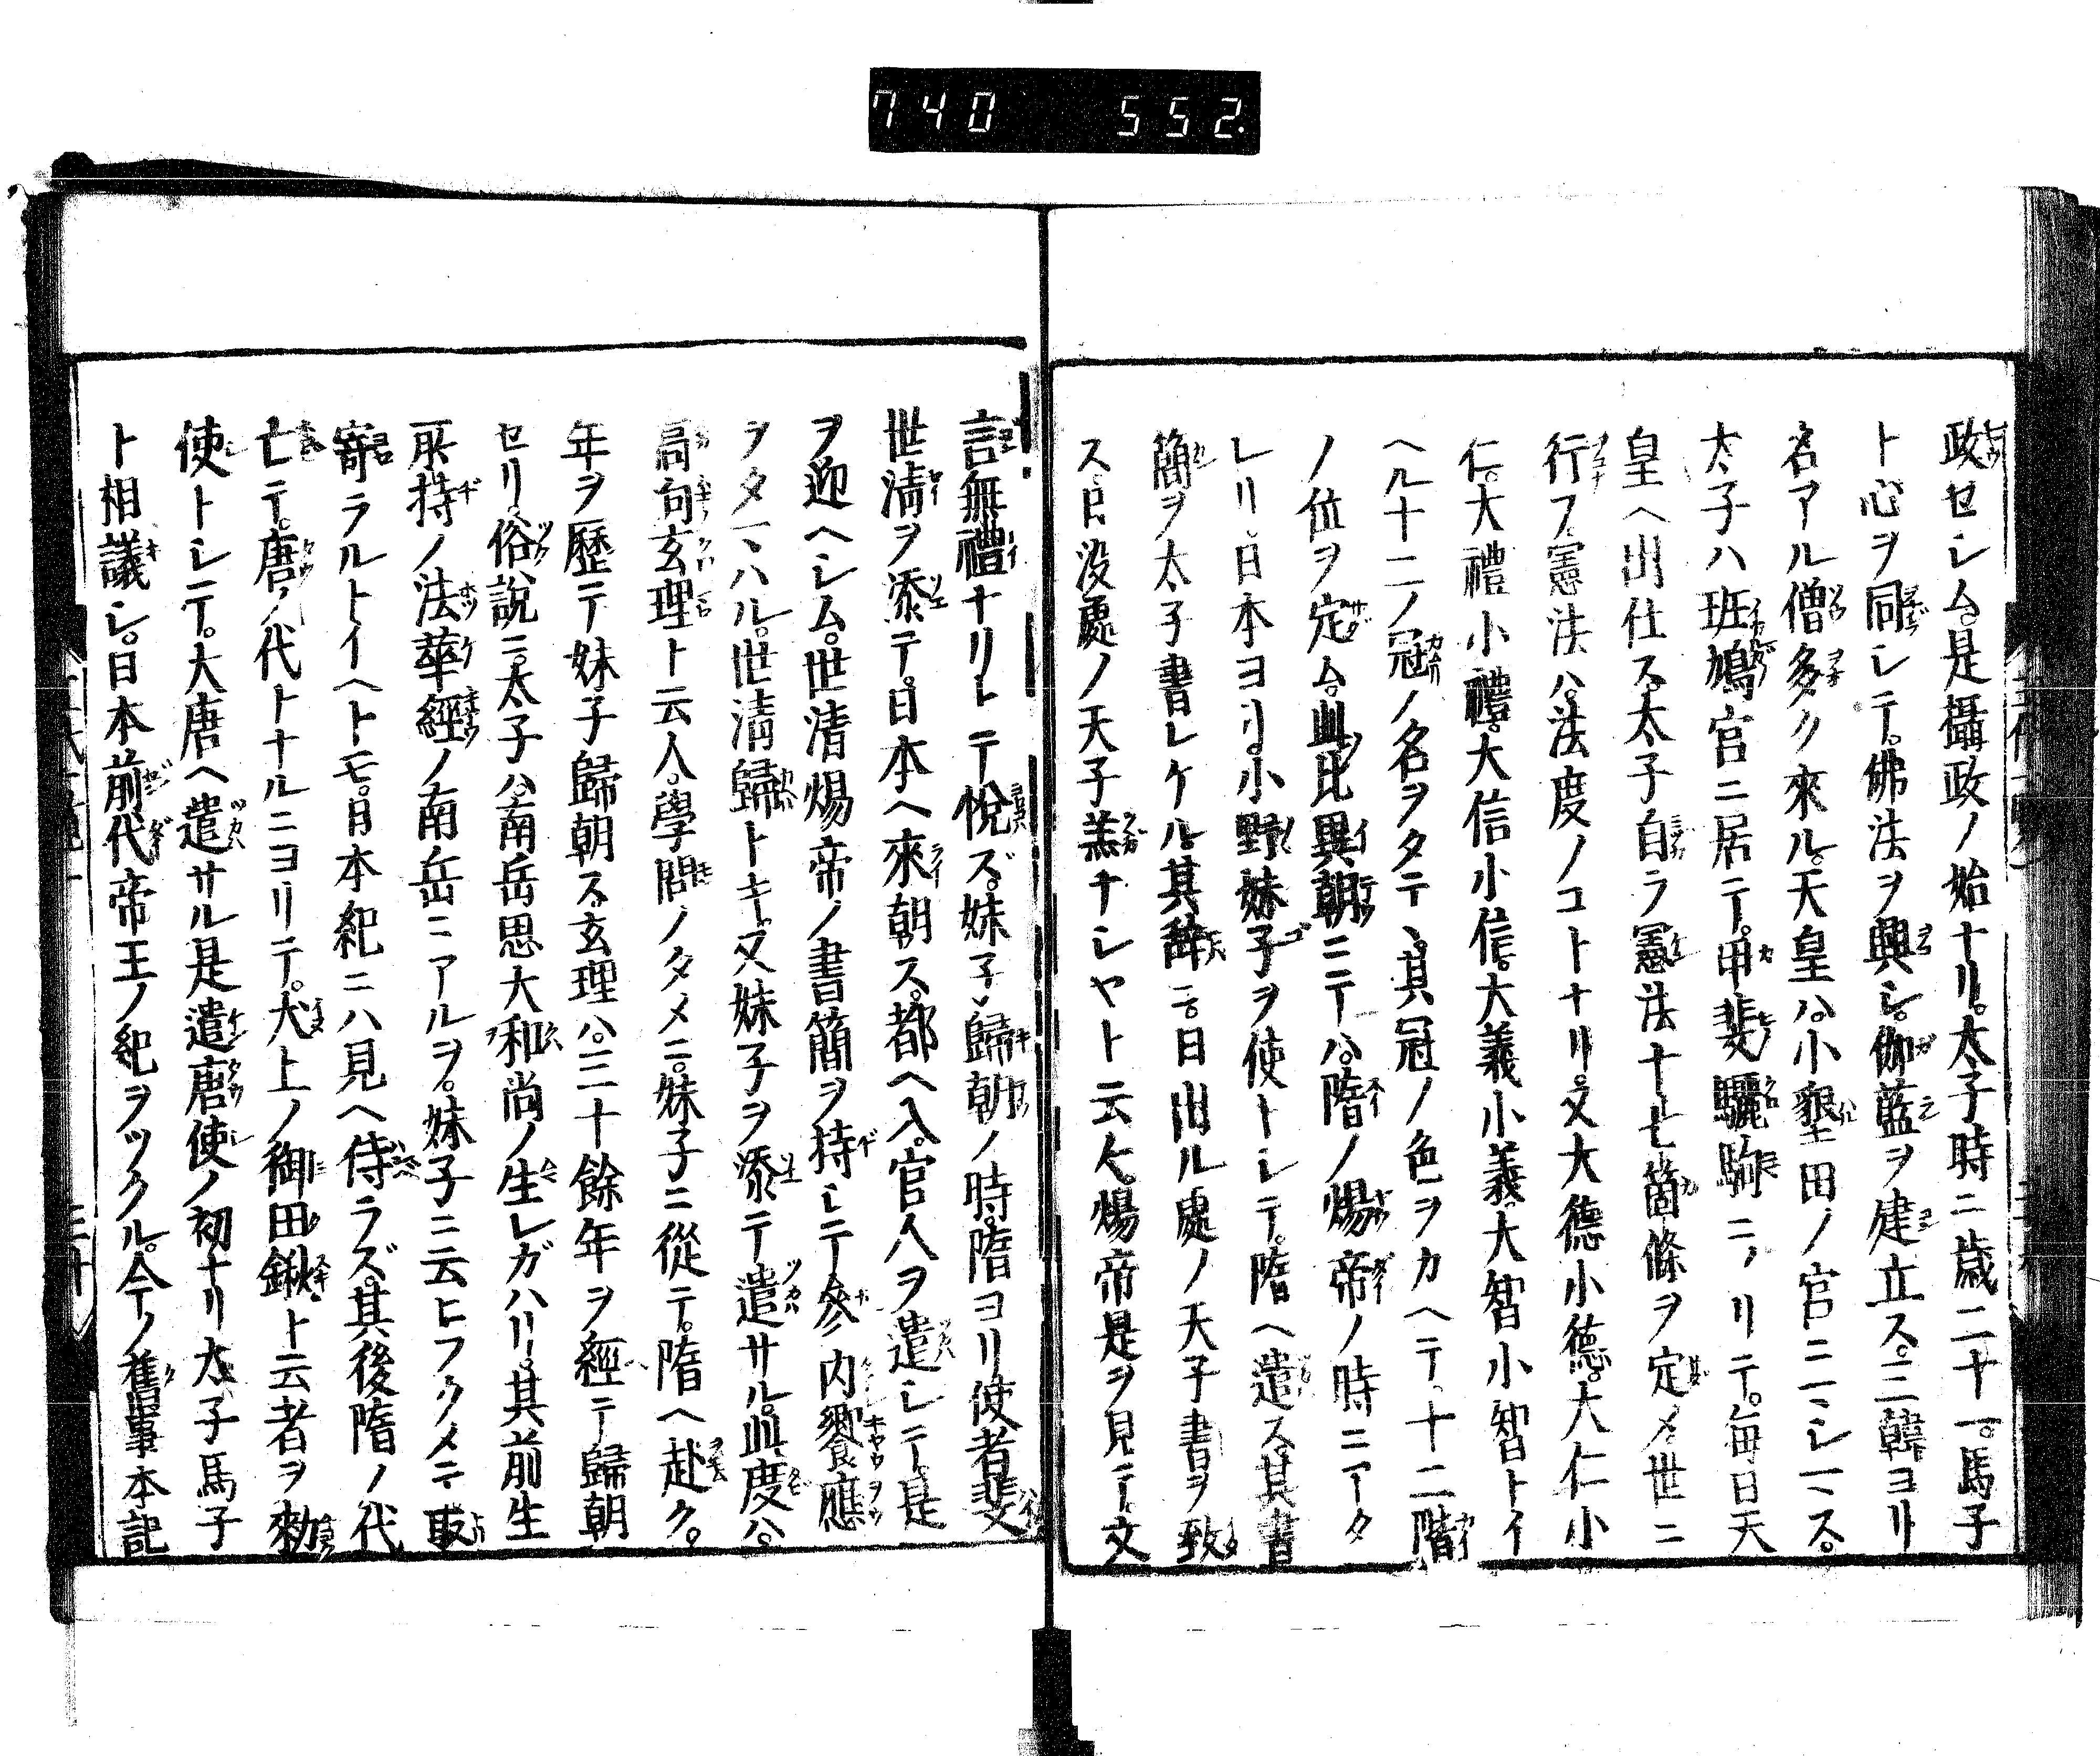 740 552.
政セシム。是攝政ノ始ナリ。太子時ニ歳二十一。馬子
ト心ヲ同シテ。佛法ヲ興シ。伽藍ヲ建立ス。三韓ヨリ
名アル僧多ク來ル。天皇ハ。小墾田ノ官ニマシマス。
太子ハ班鳩官ニ居テ。甲斐驪駒ニノリテ。毎日天
皇ヘ出仕ス。太子自ラ憲法十七箇條ヲ定メ。世ニ
行フ。憲法ハ。法度ノコトナリ。又大德小德。大仁小
仁。大禮小禮。大信小信。大義小義。大智小智トイ
ヘル十二ノ冠ノ名ヲタテヽ。其冠ノ色ヲカヘテ。十二階
ノ位ヲ定ム。此比異朝ニテハ。隋ノ煬帝ノ時ニアタ
レリ。日本ヨリ。小野妹子ヲ使トシテ。隋ヘ遣ス。其書
簡ヲ太子書レケル。其辭ニ。日出ル處ノ天子書ヲ致
ス。日沒處ノ天子恙ナシヤト云々。煬帝是ヲ見テ。文
言無禮ナリトテ悅ズ。妹子歸朝ノ時。隋ヨリ使者斐
世淸ヲ添テ。日本ヘ來朝ス。都ヘ入。官人ヲ遣シテ是
ヲ迎ヘシム。世清煬帝ノ書簡ヲ持シテ參内饗應
ヲタマハル。世淸歸トキ。又妹子ヲ添テ遣サル。此度ハ。
高向玄理ト云人。學問ノタメニ。妹子ニ從テ。隋ヘ赴ク。
年ヲ歴テ妹子歸朝ス。玄理ハ。三十餘年ヲ經テ歸朝
セリ。俗說ニ。太子ハ。南岳思大和尚ノ生レガハリ。其前生
所持ノ法華經ノ南岳ニアルヲ。妹子ニ云ヒフクメテ取
寄ラルトイヘトモ。日本紀ニハ見ヘ侍ラズ。其後隋ノ代
亡テ。唐ノ代トナルニヨリテ。犬上ノ御田鍬ト云者ヲ勅
使トシテ。大唐ヘ遣サル是遣唐使ノ初ナリ太子馬子
ト相議シ。日本前代帝王ノ紀ヲツクル。今ノ舊事本記